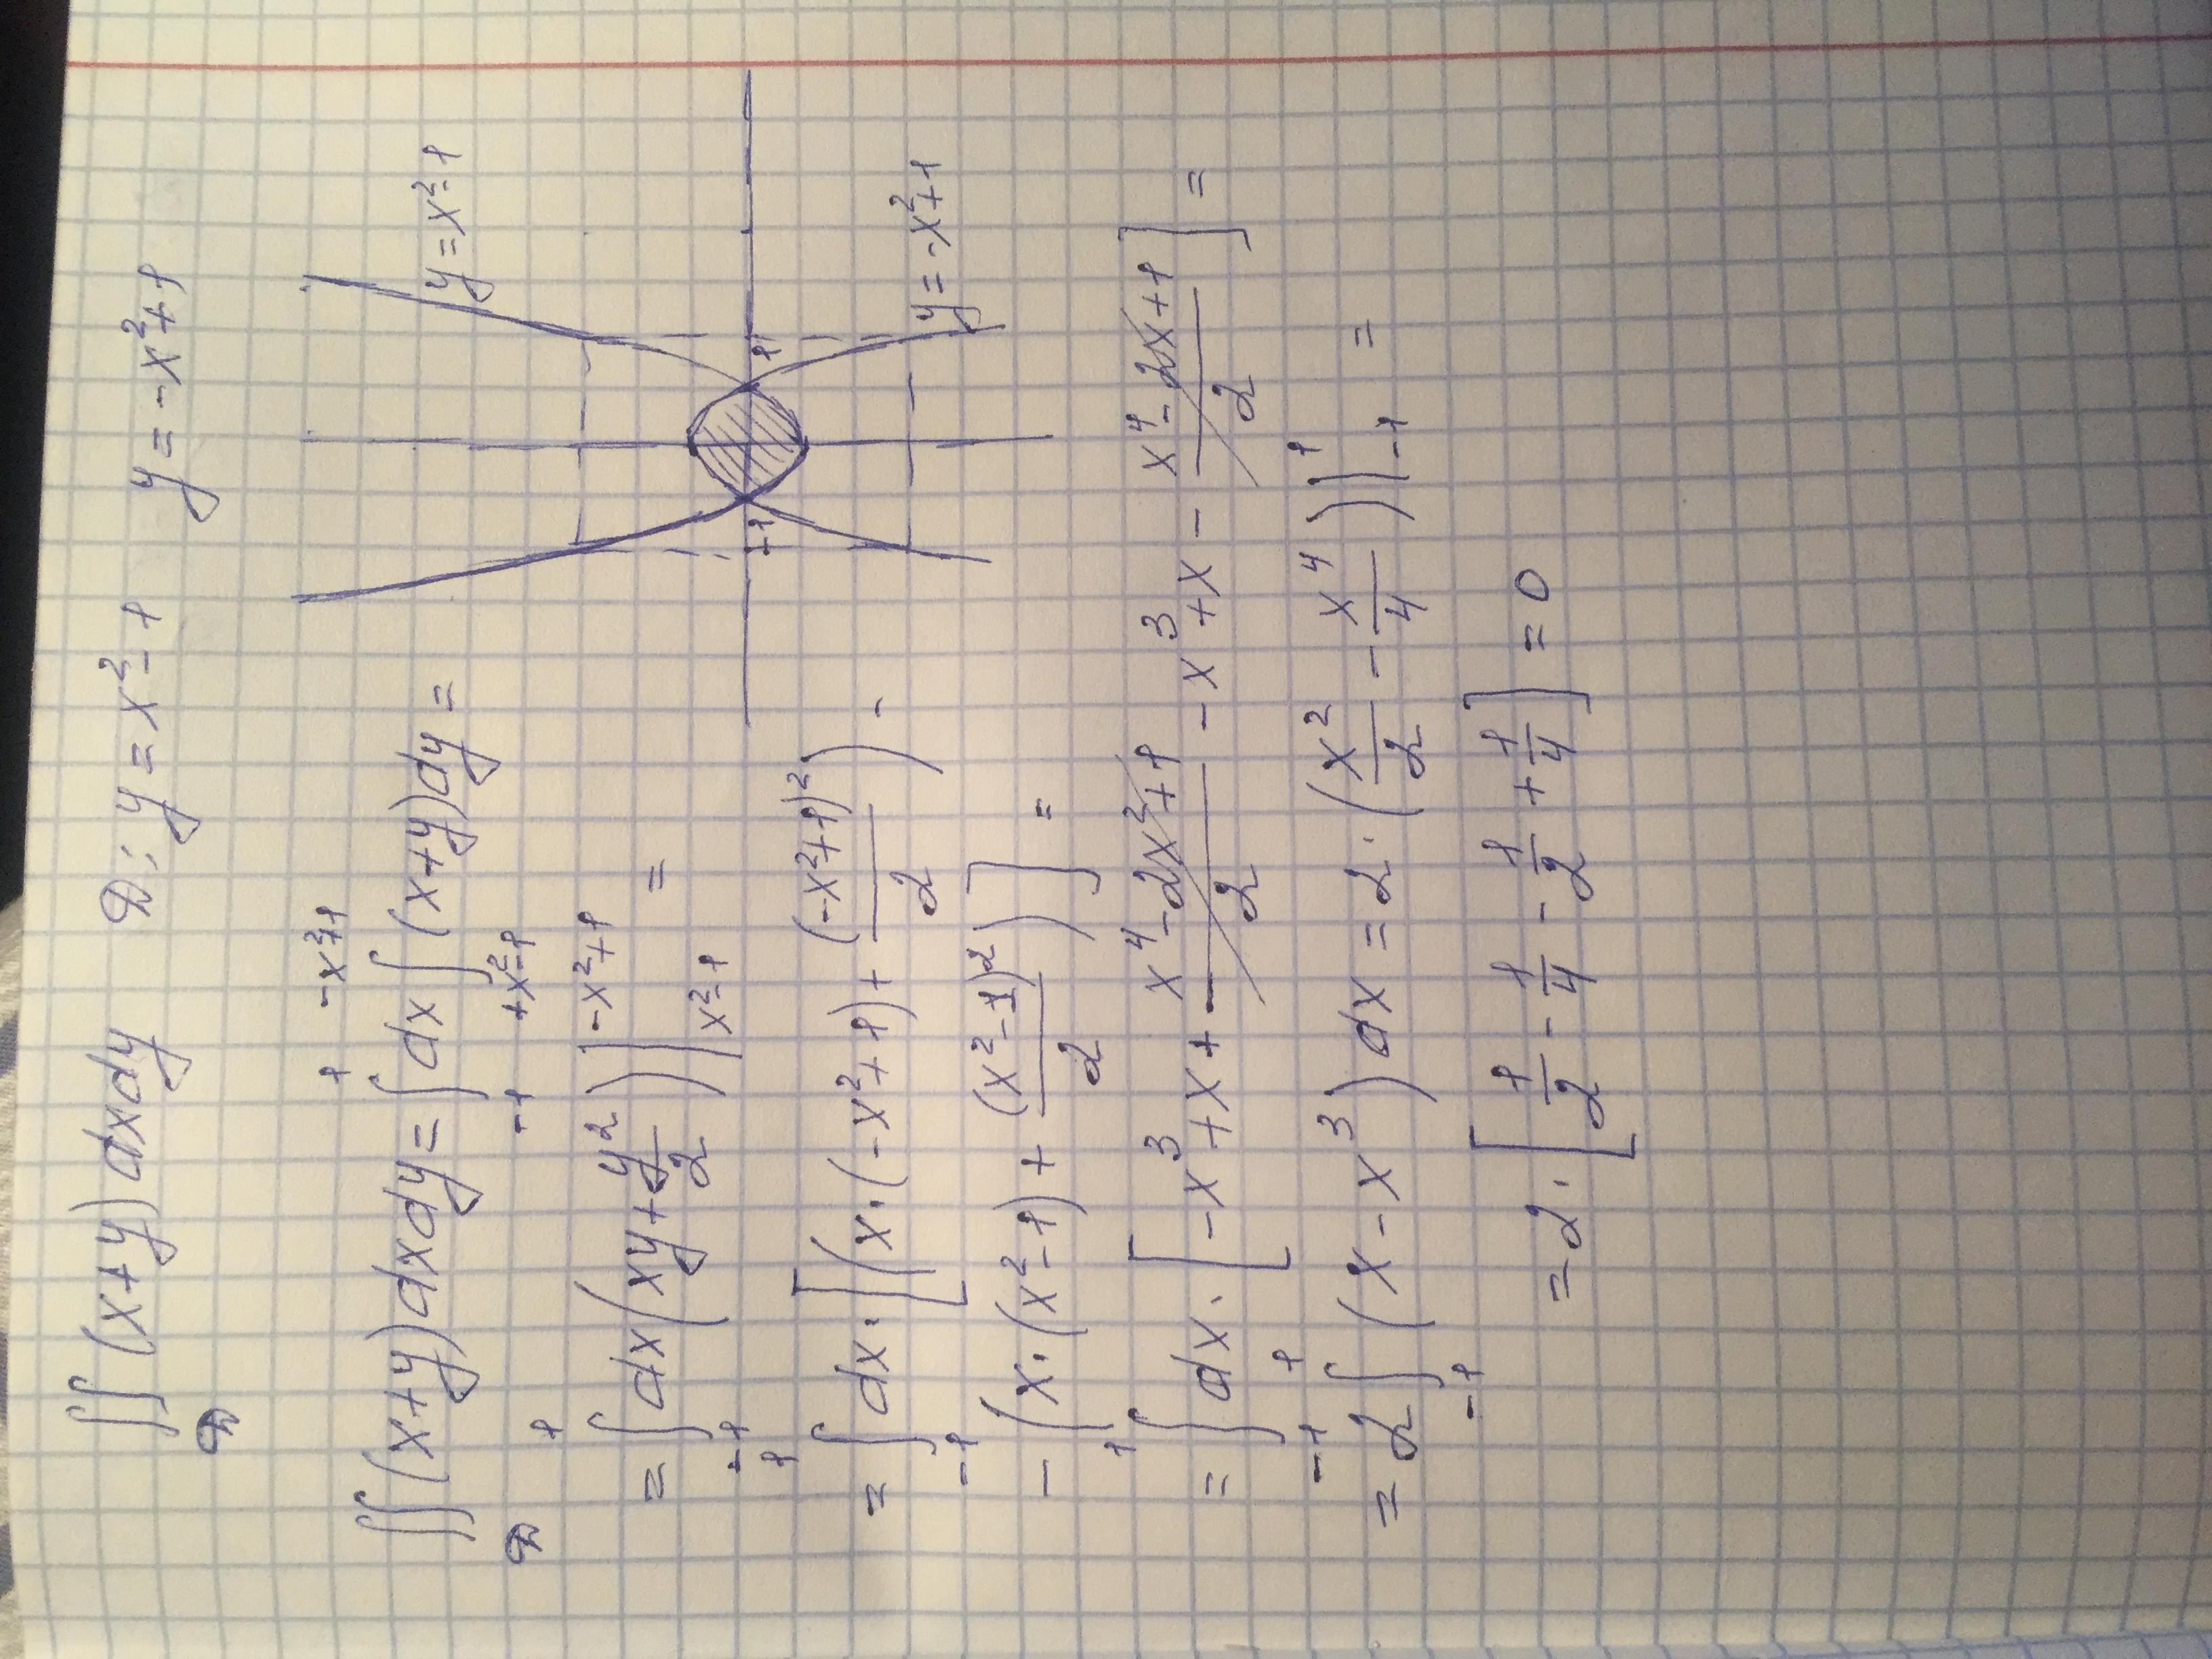 ∬_D (x+y) dxdy    D: y = x² - 1    y = -x² + 1
∬_D (x+y) dxdy = ∫_{-1}^{1} dx ∫_{+x²-1}^{-x²+1} (x+y) dy =
y = x² - 1
-1    1
y = -x² + 1
= ∫_{-1}^{1} dx (xy + y²/2) |_{x²-1}^{-x²+1} =
= ∫_{-1}^{1} dx · [(x · (-x²+1) + (-x²+1)²/2) -
- (x · (x²-1) + (x²-1)²/2)] =
= ∫_{-1}^{1} dx · [-x³ + x + (x⁴-2x²+1)/2 - x³ + x - (x⁴-2x+1)/2] =
= 2 ∫_{-1}^{1} (x - x³) dx = 2 · (x²/2 - x⁴/4) |_{-1}^{1} =
= 2 · [1/2 - 1/4 - 1/2 + 1/4] = 0